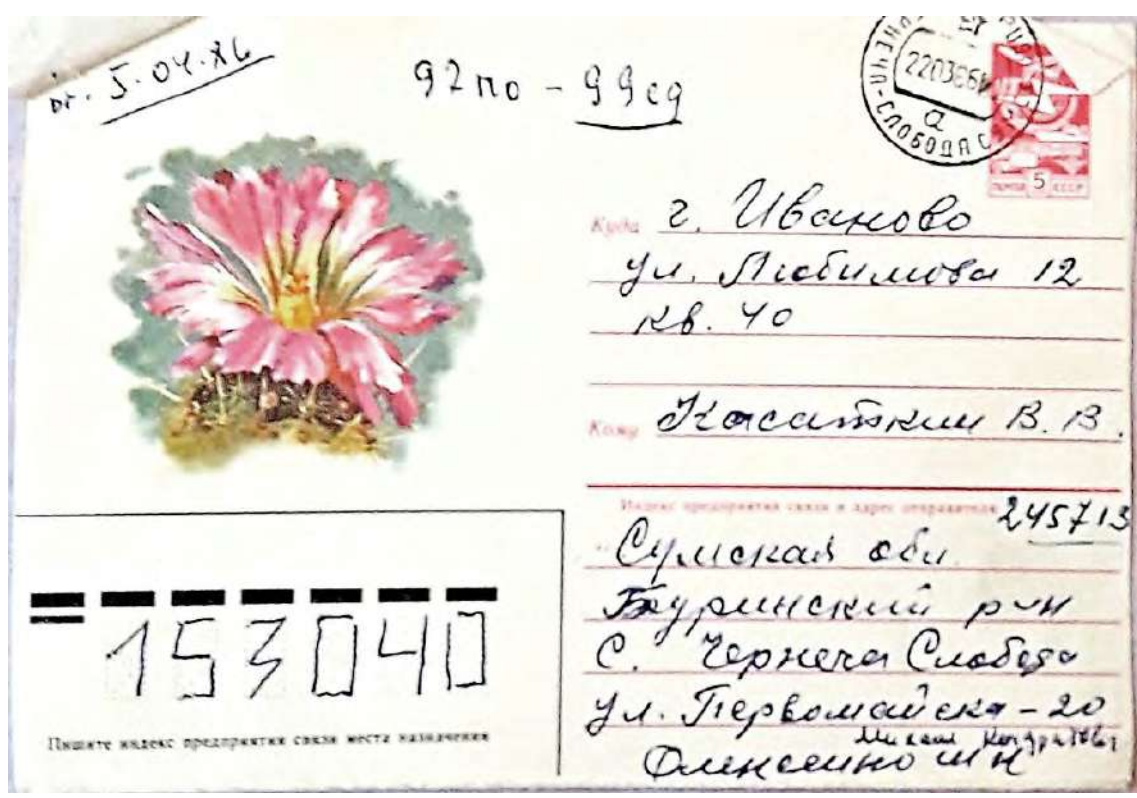 от. 5.04.86
92по - 99сд
СЛОБОДА
220386
а
ПОЧТА 5 СССР
Куда г. Иваново
ул. Любимова 12
кв. 40
Кому Касаткин В. В.
Индекс предприятия связи и адрес отправителя 245713
Сумская обл.
Буринский р-н
С. Чернеча Слобода
ул. Первомайска - 20
Михаил
153040
Пишите индекс предприятия связи места назначения